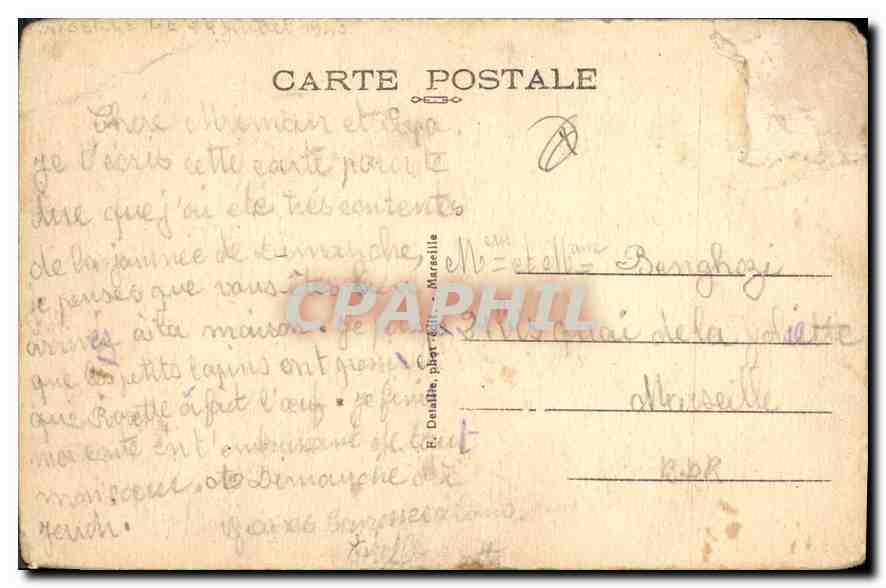 juillet
CARTE POSTALE
Chère Maman et Papa.
Je t'écris cette carte pour te
dire que j'ai été très contentes
de la journée de dimanche,
je penses que vous êtes bien
arrivés à la maison. Je
que les petits lapins ont
que Rosette à fait l'œuf. Je fini
ma carte en t'embrassant de tout
mon coeur. Dimanche
jeudi.
E. Detaille, phot.-édit. - Marseille
et Mme Benghozi
quai de la joliette
Marseille
B.D.R
CPAPHIL